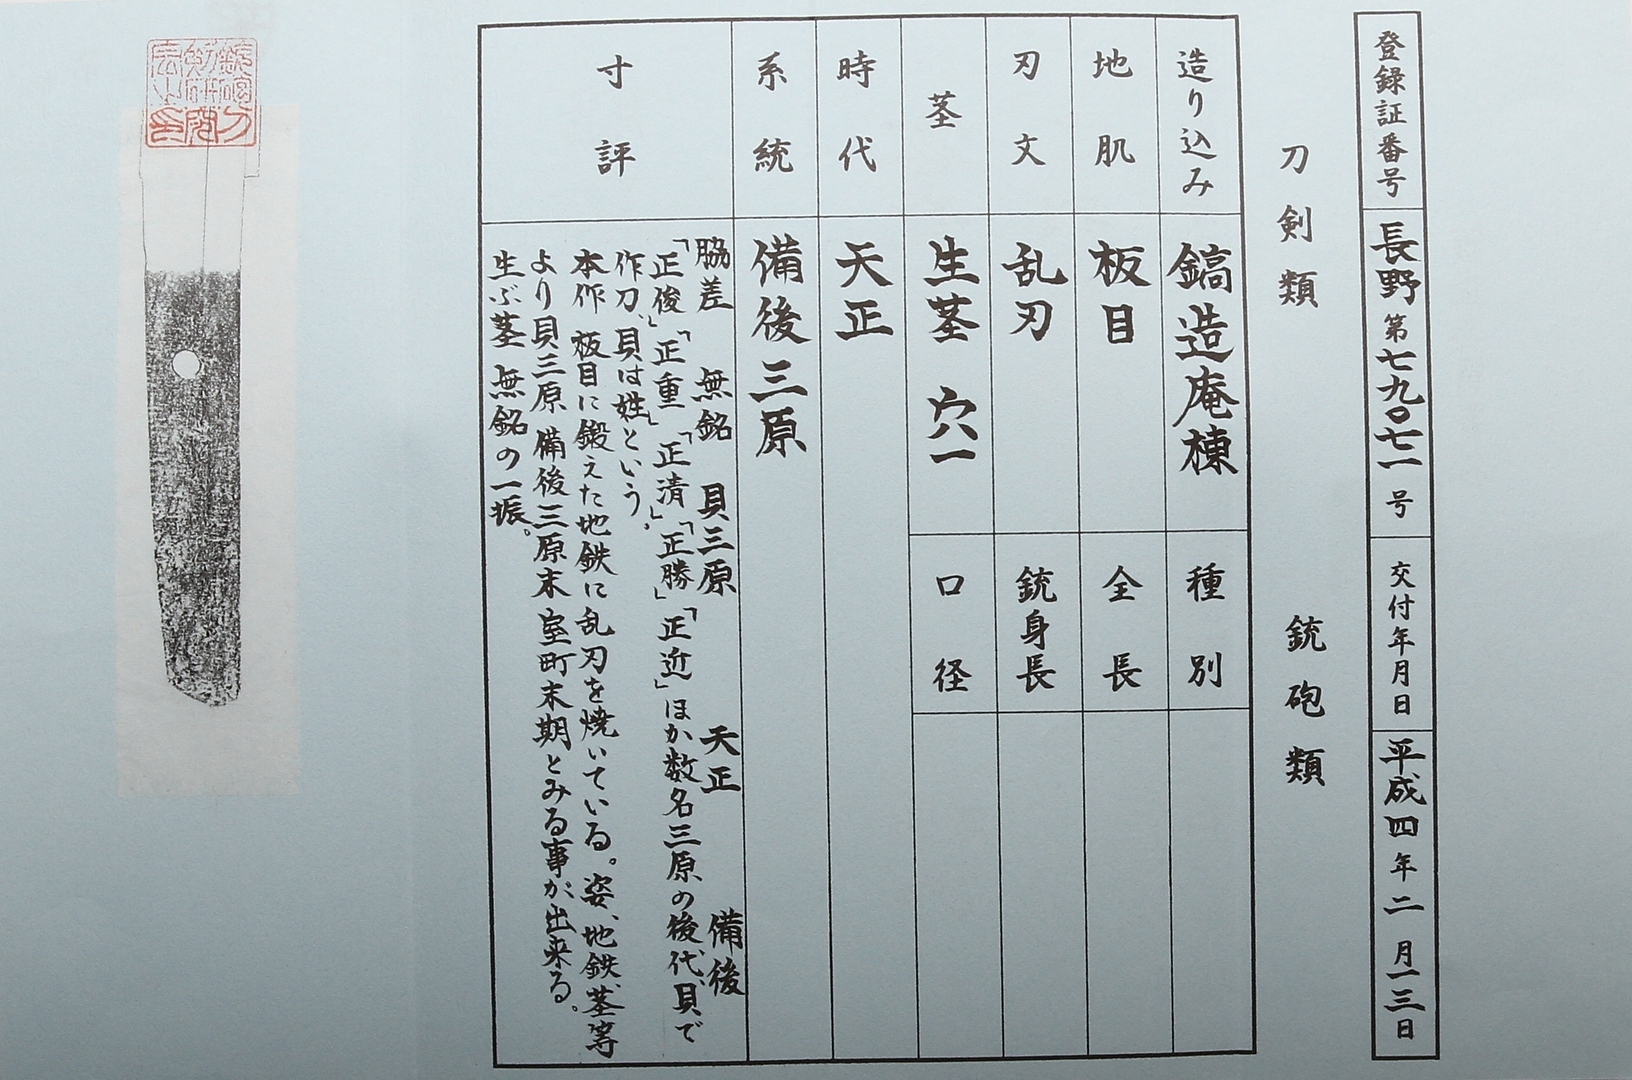 登録証番号 長野第七九〇七一号 交付年月日 平成四年二月一三日
刀剣類 銃砲類
造り込み 鎬造庵棟 種別
地肌 板目 全長
刃文 乱刃 銃身長
茎 生茎 穴一 口径
時代 天正
系統 備後三原
寸評
脇差 無銘 貝三原 天正 備後
「正俊」「正重」「正清」「正勝」「正近」ほか数名三原の後代貝で
作刀、貝は姓という。
本作 板目に鍛えた地鉄に乱刃を焼いている。姿、地鉄、茎等
より貝三原 備後三原末 室町末期とみる事が出来る。
生ぶ茎 無銘の一振。